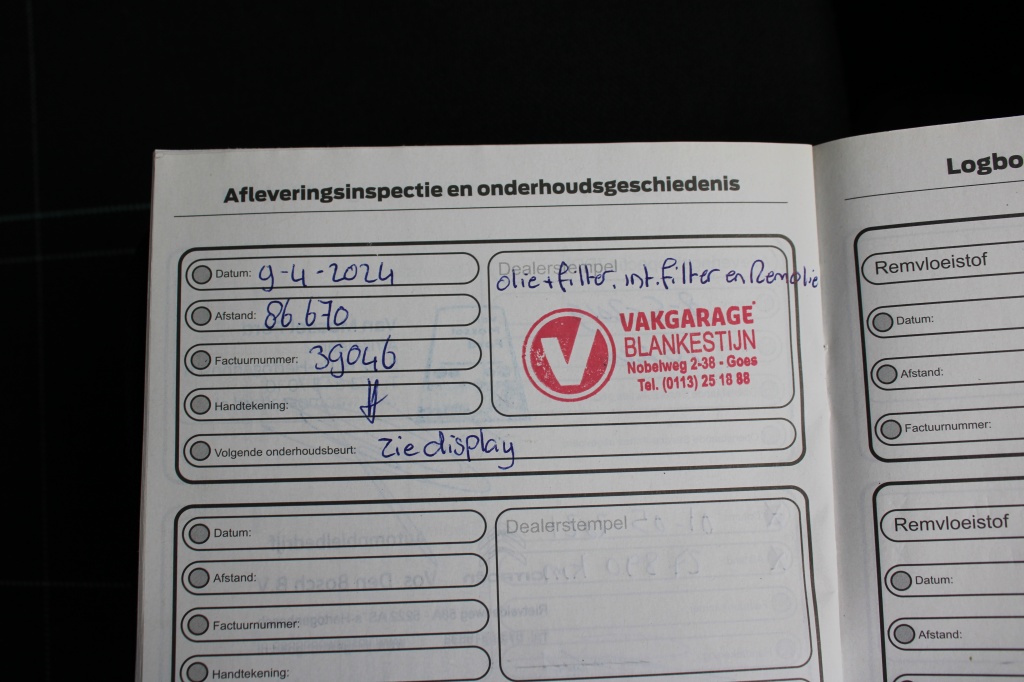 Afleveringsinspectie en onderhoudsgeschiedenis
Datum: 9-4-2024
Afstand: 86.670
Factuurnummer: 39046
Handtekening:
Volgende onderhoudsbeurt: zie display
Dealerstempel
olie + filter, int. filter en Remolie
VAKGARAGE
BLANKESTIJN
Nobelweg 2-38 - Goes
Tel. (0113) 25 18 88
Datum:
Afstand:
Factuurnummer:
Handtekening:
Dealerstempel
Logbo
Remvloeistof
Datum:
Afstand:
Factuurnummer:
Remvloeistof
Datum:
Afstand: